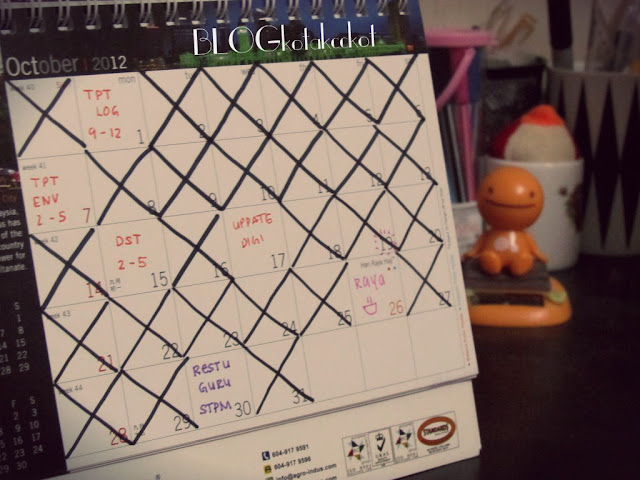 BLOGkotakcokot
October 2012
mon
week 40
TPT
LOG
9-12
1
2
3
4
5
6
week 41
TPT
ENV
2-5
7
8
9
10
12
13
City
aysia,
as has
of the
country
wer for
ltanate.
week 42
14
DST
2-5
15
16
UPDATE
DIGI
17
18
19
20
week 43
21
22
23
24
25
Hari Raya Haji
Raya
26
27
week 44
28
29
RESTU
GURU
STPM
30
31
604-917 9591
604-917 9596
info@agro-indus.com
STANDARDS
2012